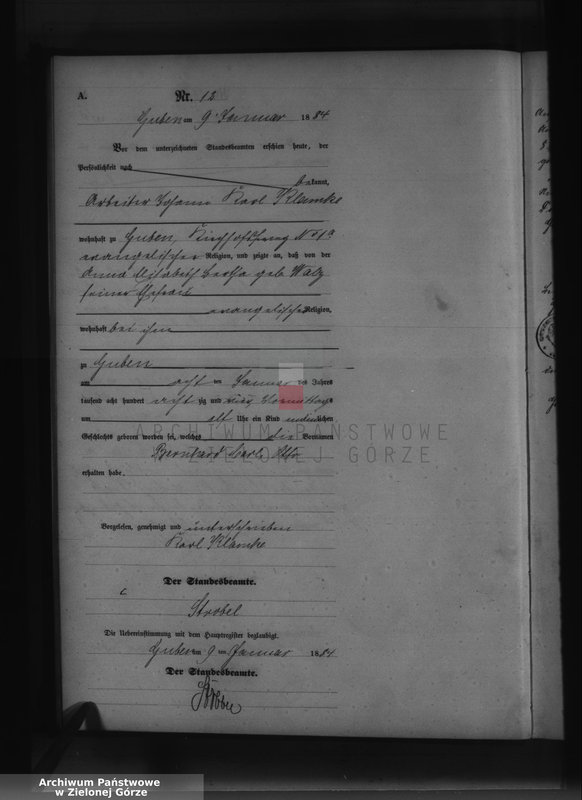 A. Nr. 12
Guben am 9. Januar 1884
Vor dem unterzeichneten Standesbeamten erschien heute, der
Persönlichkeit nach
bekannt,
Arbeiter Johann Karl Klamke
wohnhaft zu Guben,
evangelischer Religion, und zeigte an, daß von der
Anna Elisabeth Bertha geb. Walz
seiner Ehefrau
evangelischer Religion,
wohnhaft bei ihm
zu Guben
am acht ten Januar des Jahres
tausend acht hundert acht zig und vier Vormittags
um elf Uhr ein Kind männlichen
Geschlechts geboren worden sei, welches die Vornamen
Bernhard Carl Otto
erhalten habe.
Vorgelesen, genehmigt und unterschrieben
Karl Klamke
Der Standesbeamte.
Strobel
Die Uebereinstimmung mit dem Hauptregister beglaubigt.
Guben am 9 ten Januar 1884
Der Standesbeamte.
ARCHIWUM PAŃSTWOWE
W ZIELONEJ GÓRZE
Archiwum Państwowe
w Zielonej Górze